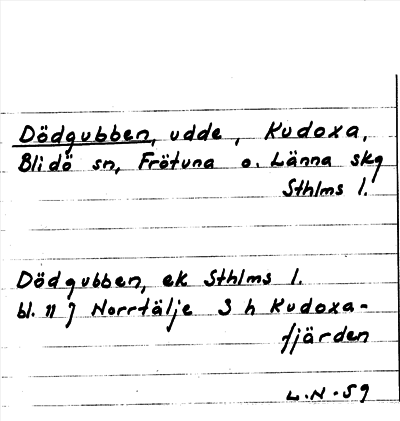 Dödgubben, udde, Kudoxa,
Blidö sn, Frötuna o. Länna skg
Sthlms l.
Dödgubben, ek Sthlms l.
bl. 11 J Norrtälje S h Kudoxa-
fjärden
L.N. 59